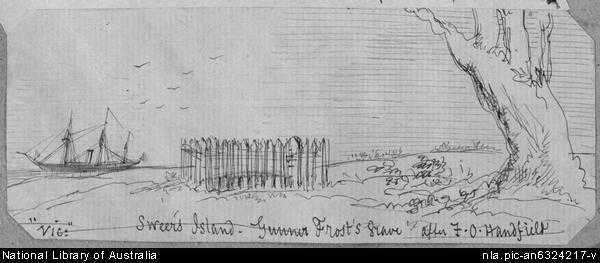 "Vic."
Sweers Island - Gunner Frost's Grave after F. O. Handfield
National Library of Australia
nla.pic-an6324217-v